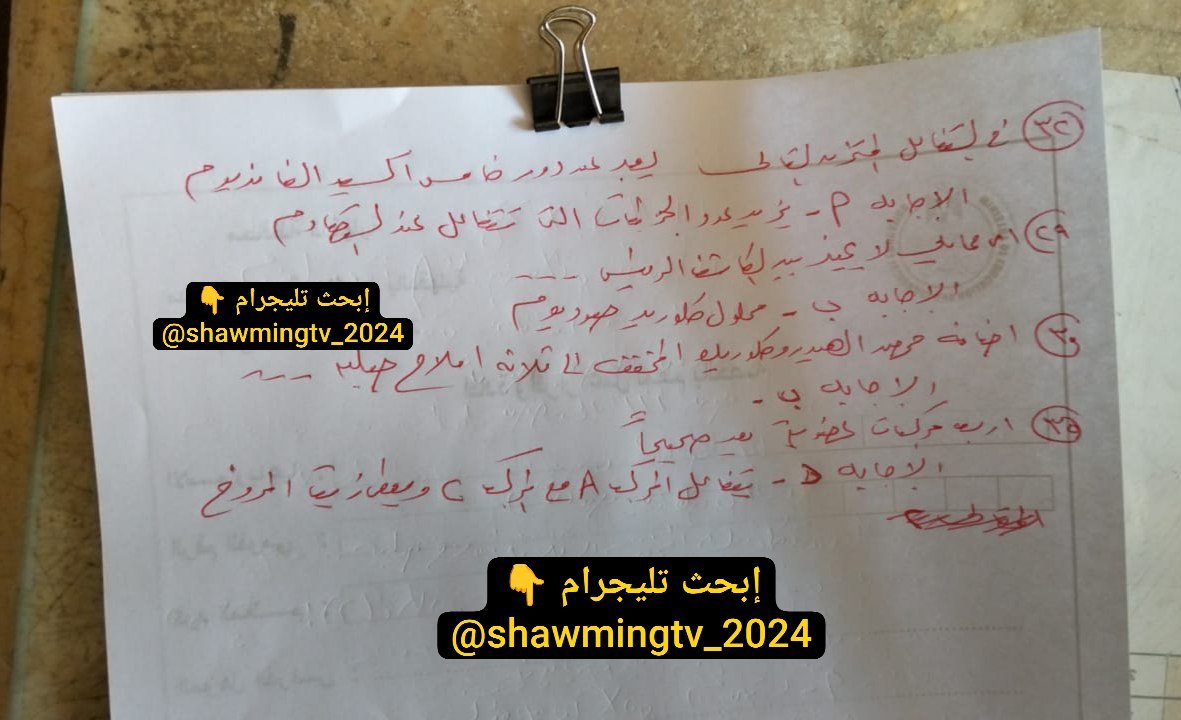 ٣٢ في التفاعل المتزن التالي يعبر عن دور خامس أكسيد الفانديوم
الاجابه م - يزيد عدد الجزيئات التى تتفاعل عند التصادم
٢٩ اى مما يلي لا يميز بين الكاشف الرئيسى ---
الاجابه ب - محلول كلوريد صوديوم
اضافه حمض الهيدروكلوريك المخفف الى ثلاثه املاح صلبه ---
الاجابه ب -
٣٥ اربع مركبات عضوية يعد صحيحاً
الاجابه D - يتفاعل المركب A مع المركب C ويعطى زيت المروخ
إبحث تليجرام 👇
@shawmingtv_2024
إبحث تليجرام 👇
@shawmingtv_2024